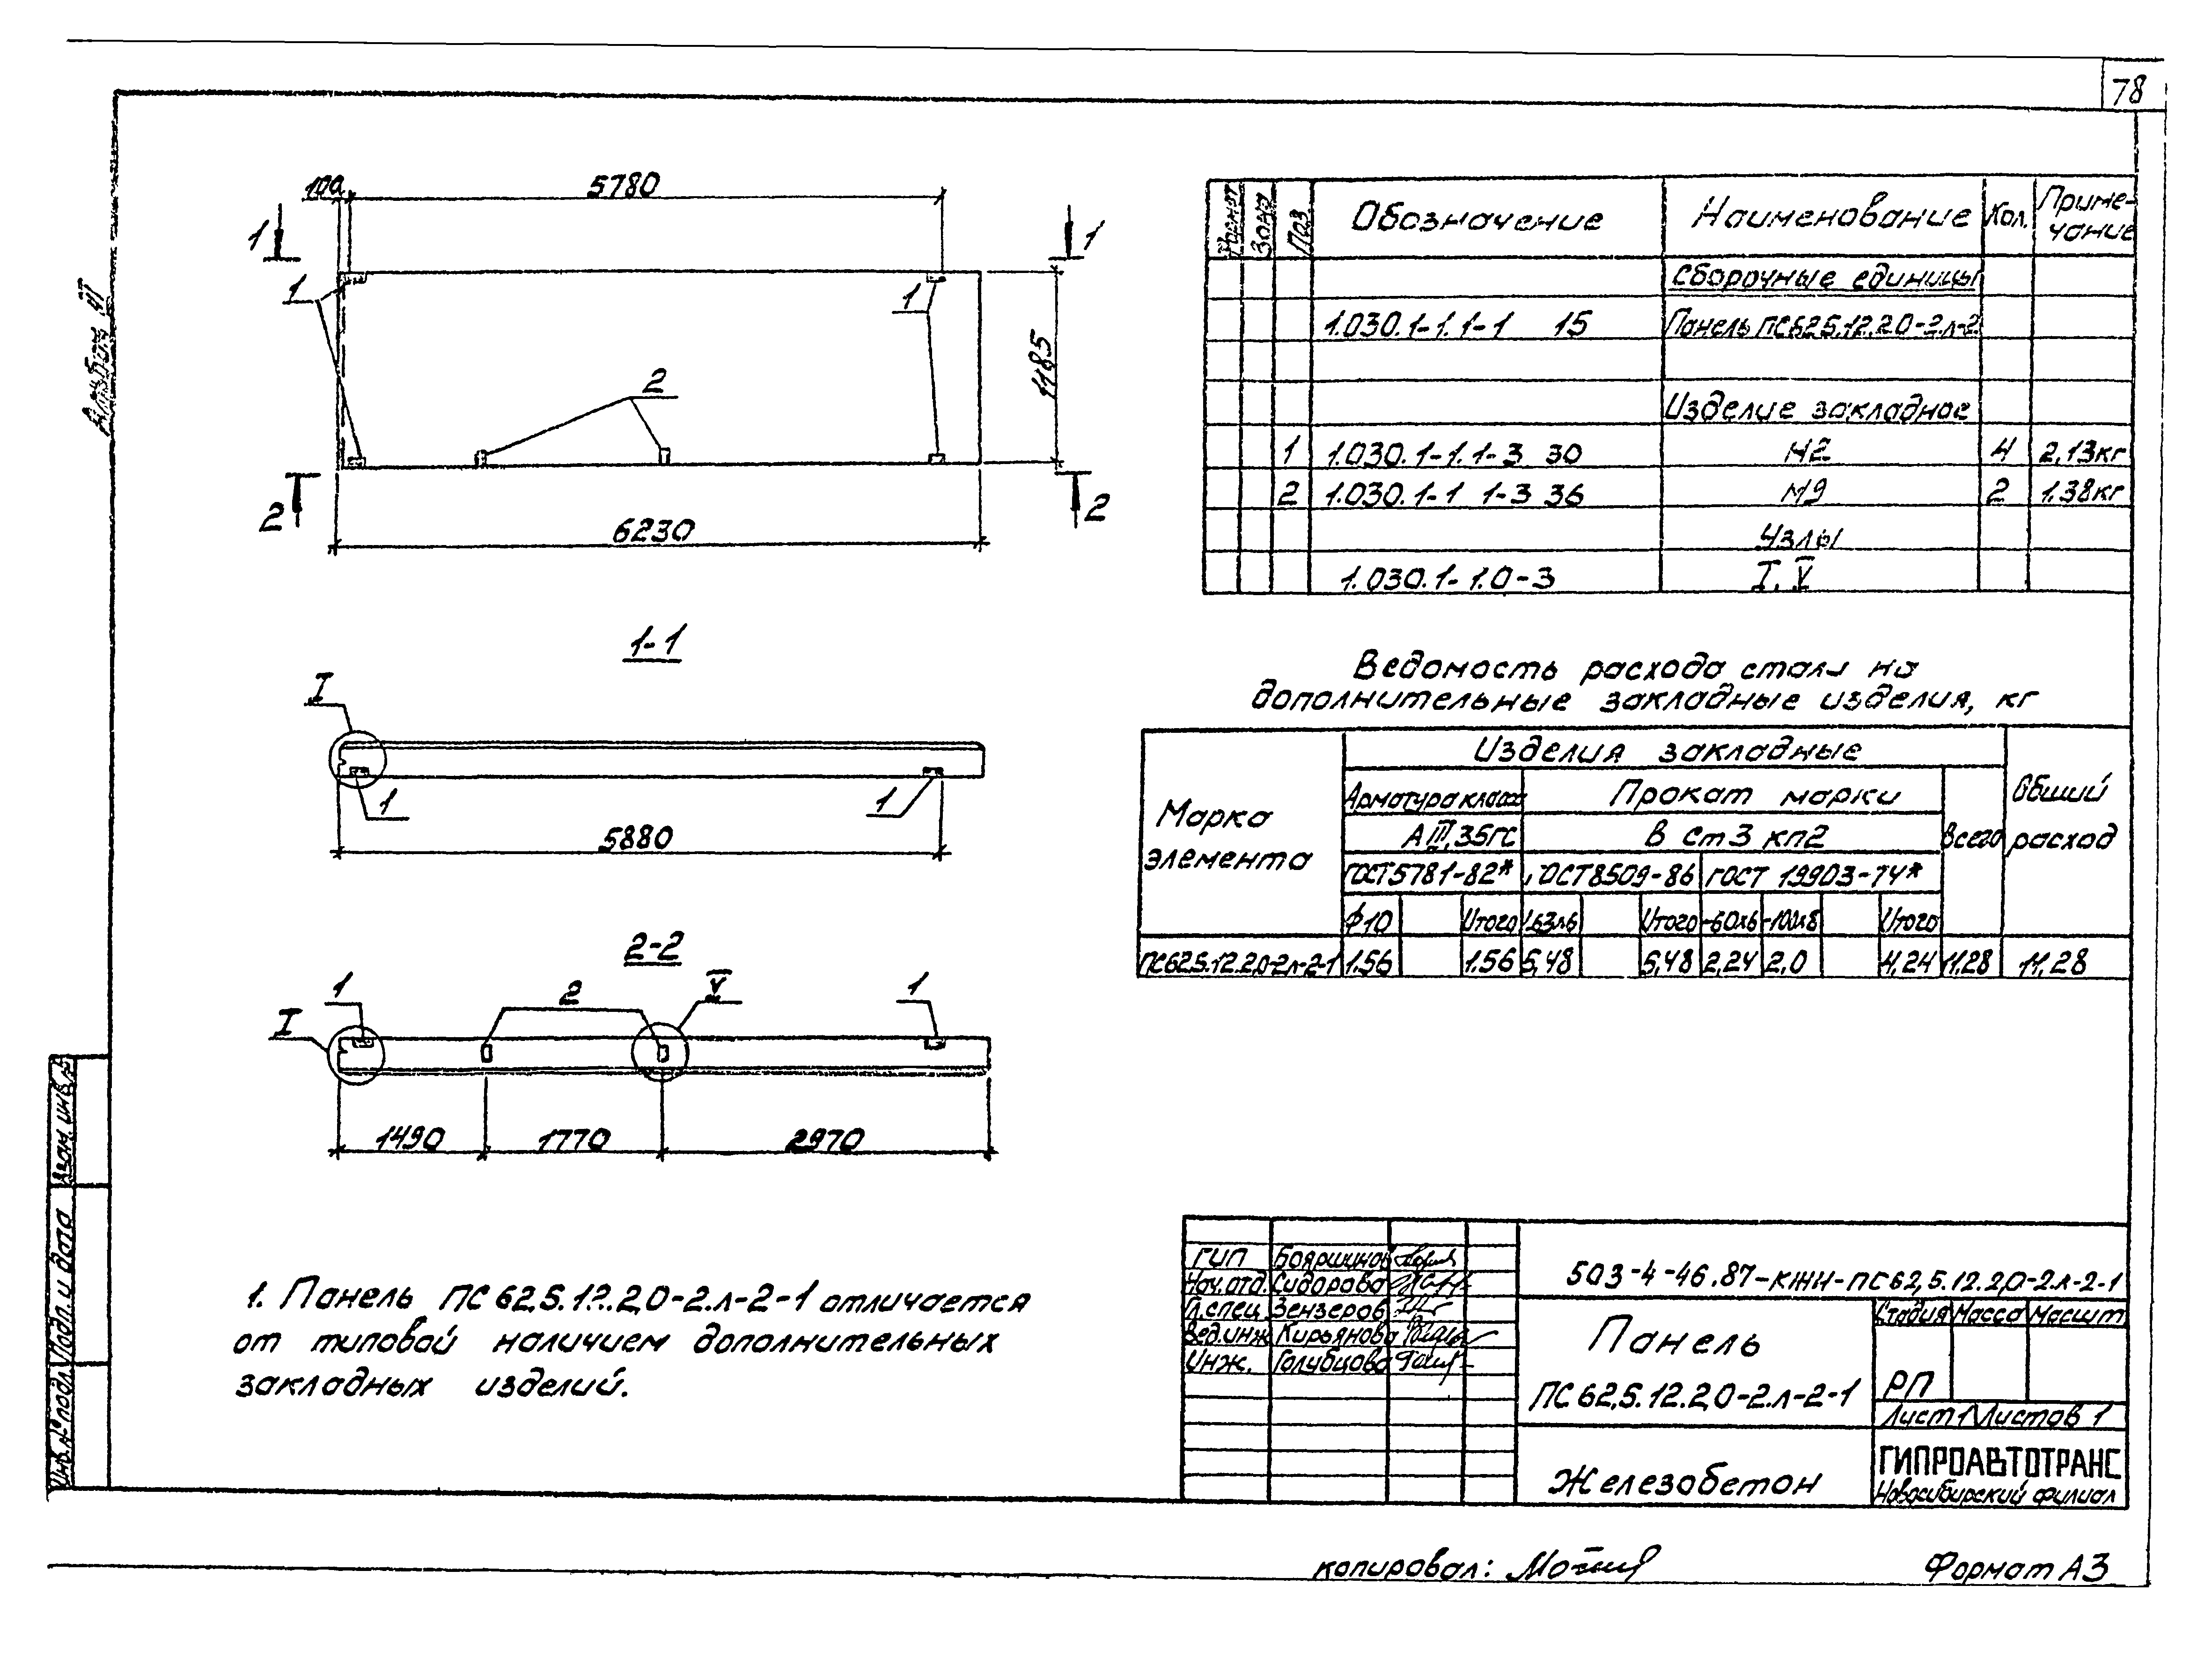 78
Альбом VI
100 5780
1 1
1 1
1185
2
2 2
6230
1-1
I
1 1
5880
2-2
1 2 V 1
I
1490 1770 2970
1. Панель ПС 62,5.12.2,0-2.л-2-1 отличается
от типовой наличием дополнительных
закладных изделий.
Формат Зона Поз. Обозначение Наименование Кол. Приме-
чание
Сборочные единицы
1.030.1-1.1-1 15 Панель ПС62,5.12.2,0-2.л-2
Изделие закладное
1 1.030.1-1.1-3 30 М2 4 2,13кг
2 1.030.1-1 1-3 36 М9 2 1,38кг
Узлы
1.030.1-1.0-3 I, V
Ведомость расхода стали на
дополнительные закладные изделия, кг
Марка
элемента
Изделия закладные
Общий
расход
Арматура класса Прокат марки
А III, 35ГС В Ст3 кп2 Всего
ГОСТ 5781-82* ГОСТ 8509-86 ГОСТ 19903-74*
Ф10 Итого Итого Итого
ПС62,5.12.2,0-2.л-2-1 1.56 1.56 5,48 5,48 2,24 2,0 4,24 11,28 11,28
503-4-46.87-КЖИ-ПС62,5.12.2,0-2.л-2-1
ГИП Бояршинов
Нач.отд. Сидорова
Гл.спец Зензеров
Вед.инж Кирьянова
Инж. Голубцова
Панель
ПС 62,5.12.2,0-2.л-2-1
Стадия Масса Масшт
РП
Лист 1 Листов 1
Железобетон
ГИПРОАВТОТРАНС
Новосибирский филиал
Взам. инв. №
Подп. и дата
Инв. № подл.
копировал:
Формат А3